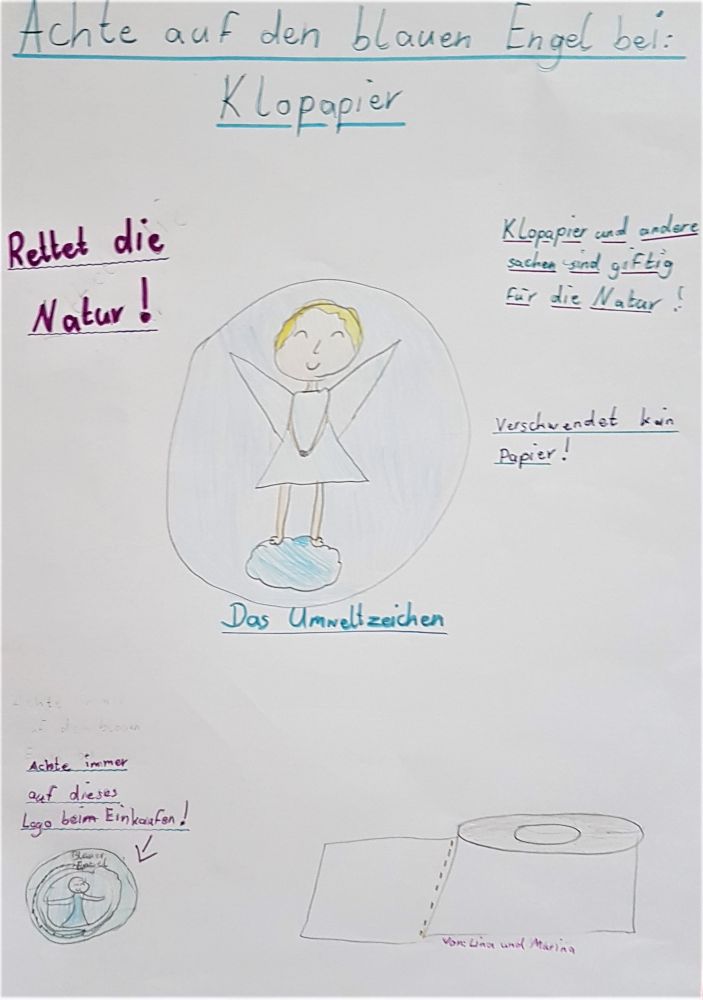 Achte auf den blauen Engel bei:
Klopapier
Rettet die
Natur!
Klopapier und andere
sachen sind giftig
für die Natur!
Verschwendet kein
Papier!
Das Umweltzeichen
Achte
den blauen
Achte immer
auf dieses
Logo beim Einkaufen!
Blauer
Engel
Von: Lina und Marina